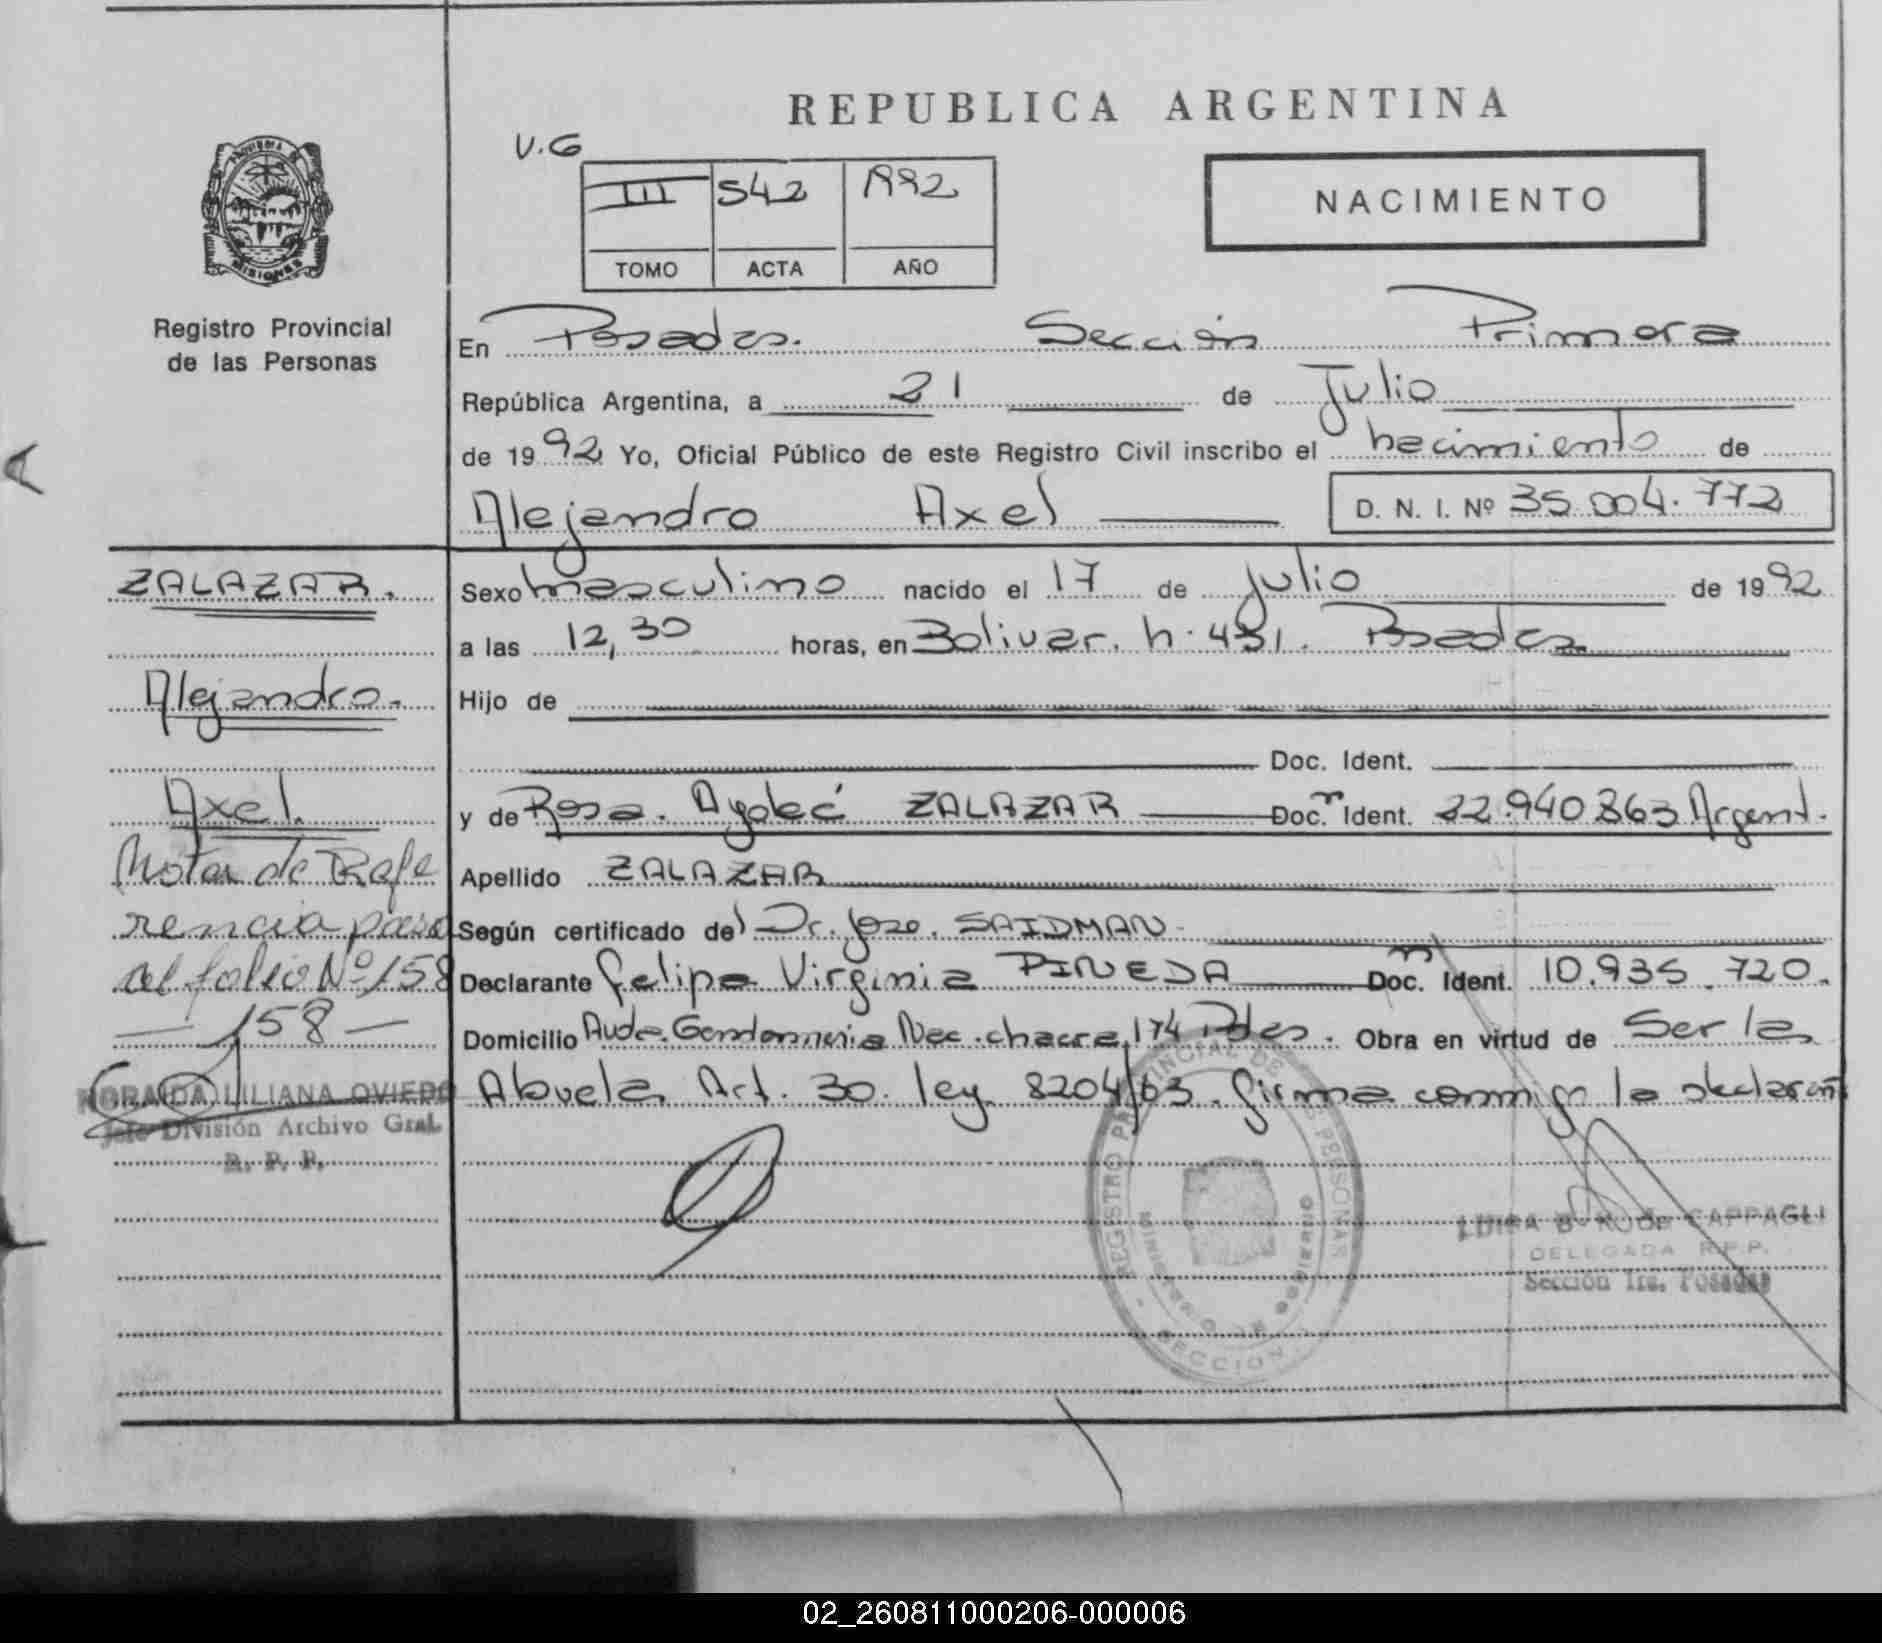 REPUBLICA ARGENTINA
PROVINCIA DE
MISIONES
Registro Provincial
de las Personas
V.G
III 542 1992
TOMO ACTA AÑO
NACIMIENTO
En Posadas. Sección Primera
República Argentina, a 21 de Julio
de 1992 Yo, Oficial Público de este Registro Civil inscribo el nacimiento de
Alejandro Axel D. N. I. Nº 35.004.772
ZALAZAR.
Alejandro.
Axel.
Notas de Refe
rencia pasa
al folio Nº 158
— 158 —
LILIANA OVIEDO
Jefe División Archivo Gral.
R. P. P.
Sexo masculino nacido el 17 de Julio de 1992
a las 12,30 horas, en Bolivar. n. 431. Posadas
Hijo de
Doc. Ident.
y de Rosa. ZALAZAR Doc. Ident. 22.940.863 Argent.
Apellido ZALAZAR
Según certificado del Dr. Jose. SAIDMAN
Declarante Felipa Virginia PINEDA Doc. Ident. 10.935.720.
Domicilio Avda. Gendarmeria Nac. chacra 174 Pdas. Obra en virtud de Ser la
Abuela Art. 30. ley 8204/63. firma conmigo la declarante
REGISTRO PROVINCIAL DE LAS PERSONAS
MINISTERIO DE GOBIERNO
SECCION
LUISA B. CAPPAGLI
DELEGADA R.P.P.
Sección 1ra. Posadas
02_260811000206-000006